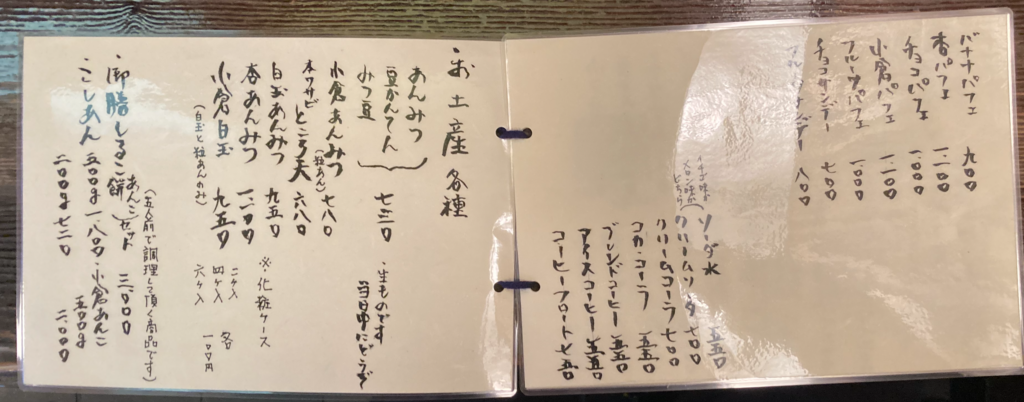 バナナパフェ 九〇〇
杏パフェ 一、一〇〇
チョコパフェ 一、〇〇〇
小倉パフェ 一、一〇〇
フルーツパフェ 一、〇〇〇
チョコサンデー 七〇〇
フルーツサンデー 八〇〇
ソーダ水 五五〇
イチゴ味か
メロン味か
どちらか
クリームソーダ 七〇〇
クリームコーラ 七〇〇
コカ・コーラ 五五〇
ブレンドコーヒー 五五〇
アイスコーヒー 五五〇
コーヒーフロート 七五〇
・お土産各種
・生ものです
当日中にどうぞ
あんみつ
豆かんてん
みつ豆
七三〇
小倉あんみつ 七八〇
(粒あん)
本ワサビところ天 六八〇
白玉あんみつ 九五〇
杏あんみつ 一、一〇〇
小倉白玉 九五〇
(白玉と粒あんのみ)
※化粧ケース
二ヶ入
四ヶ入
六ヶ入
各
一〇〇円
・御膳しるこ餅 あんこセット 三、〇〇〇
(五人前で調理して頂く商品です)
・こしあん 五〇〇g 一、八〇〇
二〇〇g 七三〇
・小倉あんこ
五〇〇g 二、〇〇〇